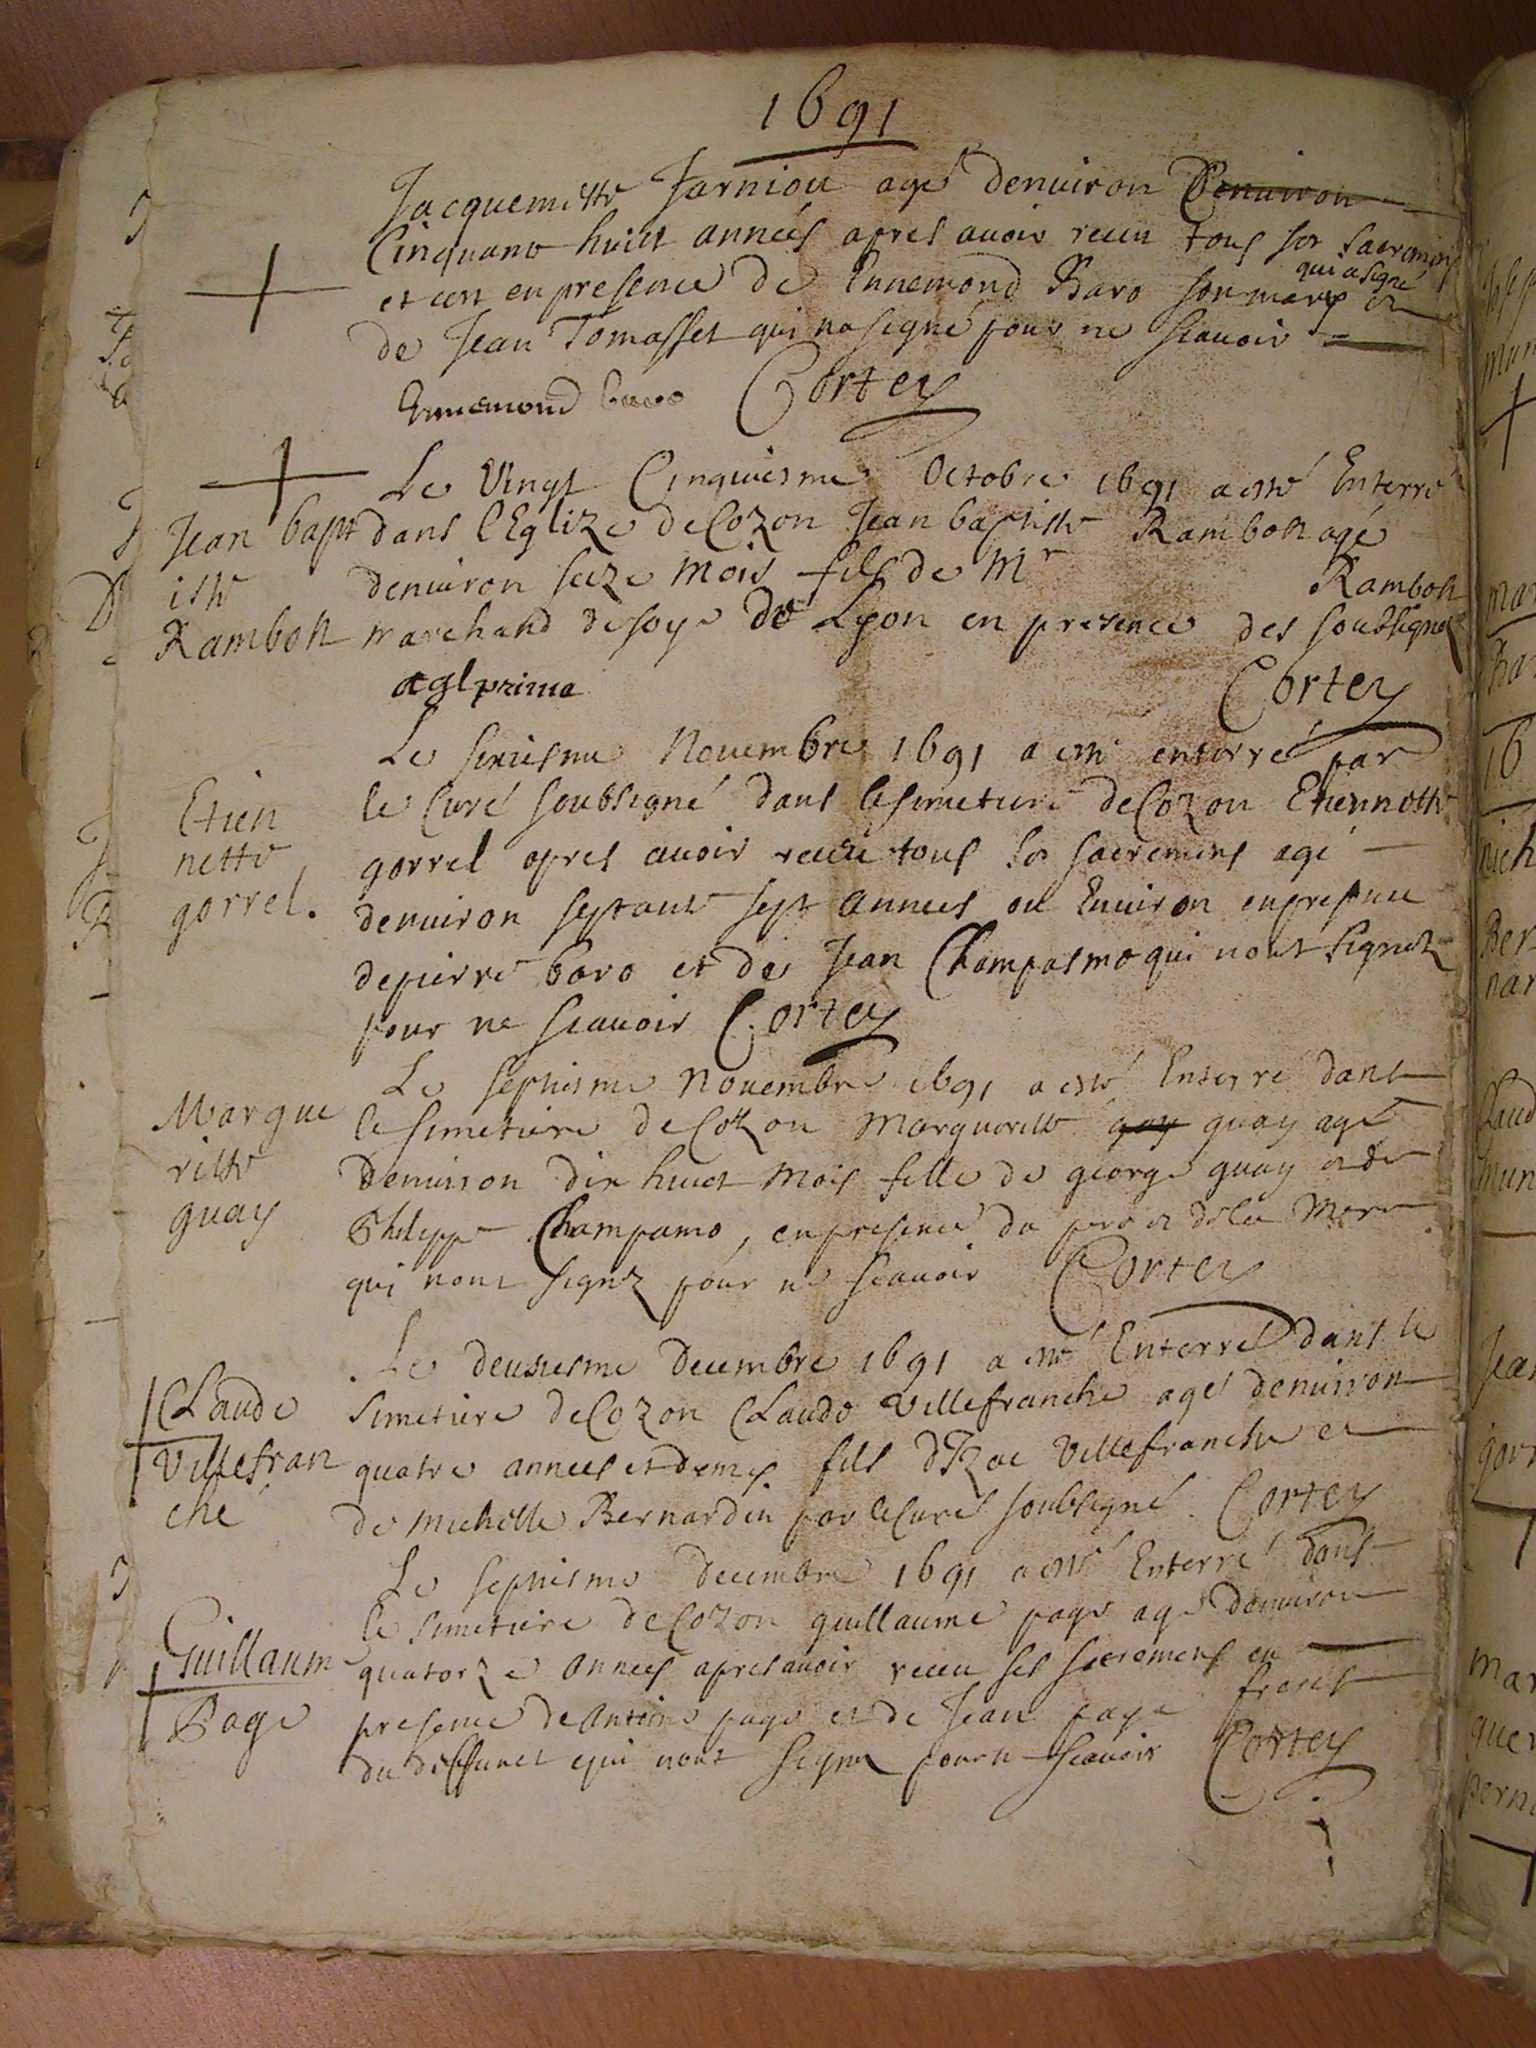 1691
Jacquemette Jarniou agé denuiron Denuiron
Cinquante huict années apres auoir receu tous ses sacremens
et cen en presence de Ennemond Baro son marÿ qui a signé et
de Jean Tomasset qui na signé pour ne scauoir
Ennemond baro Cortey
Le Vingt Cinquiesme Octobre 1691 a esté Enterré
Jean bapt dans l'Eglize de Cozon Jean baptiste Rambon agé
iste denuiron seize mois fils de Mr Rambon
Rambon marchand de soye de Lyon en presence des soubsignez
Cortey
Le sixiesme Nouembre 1691 a esté enterré par
le Curé soubsigné dans le simetiere de Cozon Etiennette
Etien
nette
gorrel.
gorrel apres auoir receu tous ses sacremens agé
denuiron septante sept annees ou Enuiron en presence
de pierre baro et de Jean Champasmo qui nont signez
pour ne scauoir Cortey
Le septiesme Nouembre 1691 a esté Enterre dans
Margue
ritte
guay
le simetiere de Cozon Margueritte gay guay agé
Denuiron dix huict mois fille de george guay et de
Philippe Champamo, en presence du pere et de la Mere
qui nont signez pour ne scauoir Cortey
Le deusiesme Decembre 1691 a esté Enterré dans le
Claude
Villefran
che
simetiere de Cozon Claude Villefranche agé denuiron
quatre annees et demÿ fils d'Izac Villefranche et
de Michelle Bernardin par le Curé soubsigné. Cortey
Le septiesme Decembre 1691 a esté Enterré dans
le simetiere de Cozon guillaume page agé denuiron
Guillaum
Page
quatorze annees apres auoir receu ses sacremens en
presence de Antoine page et de Jean page freres
du deffunct qui nont signez pour ne scauoir Cortey